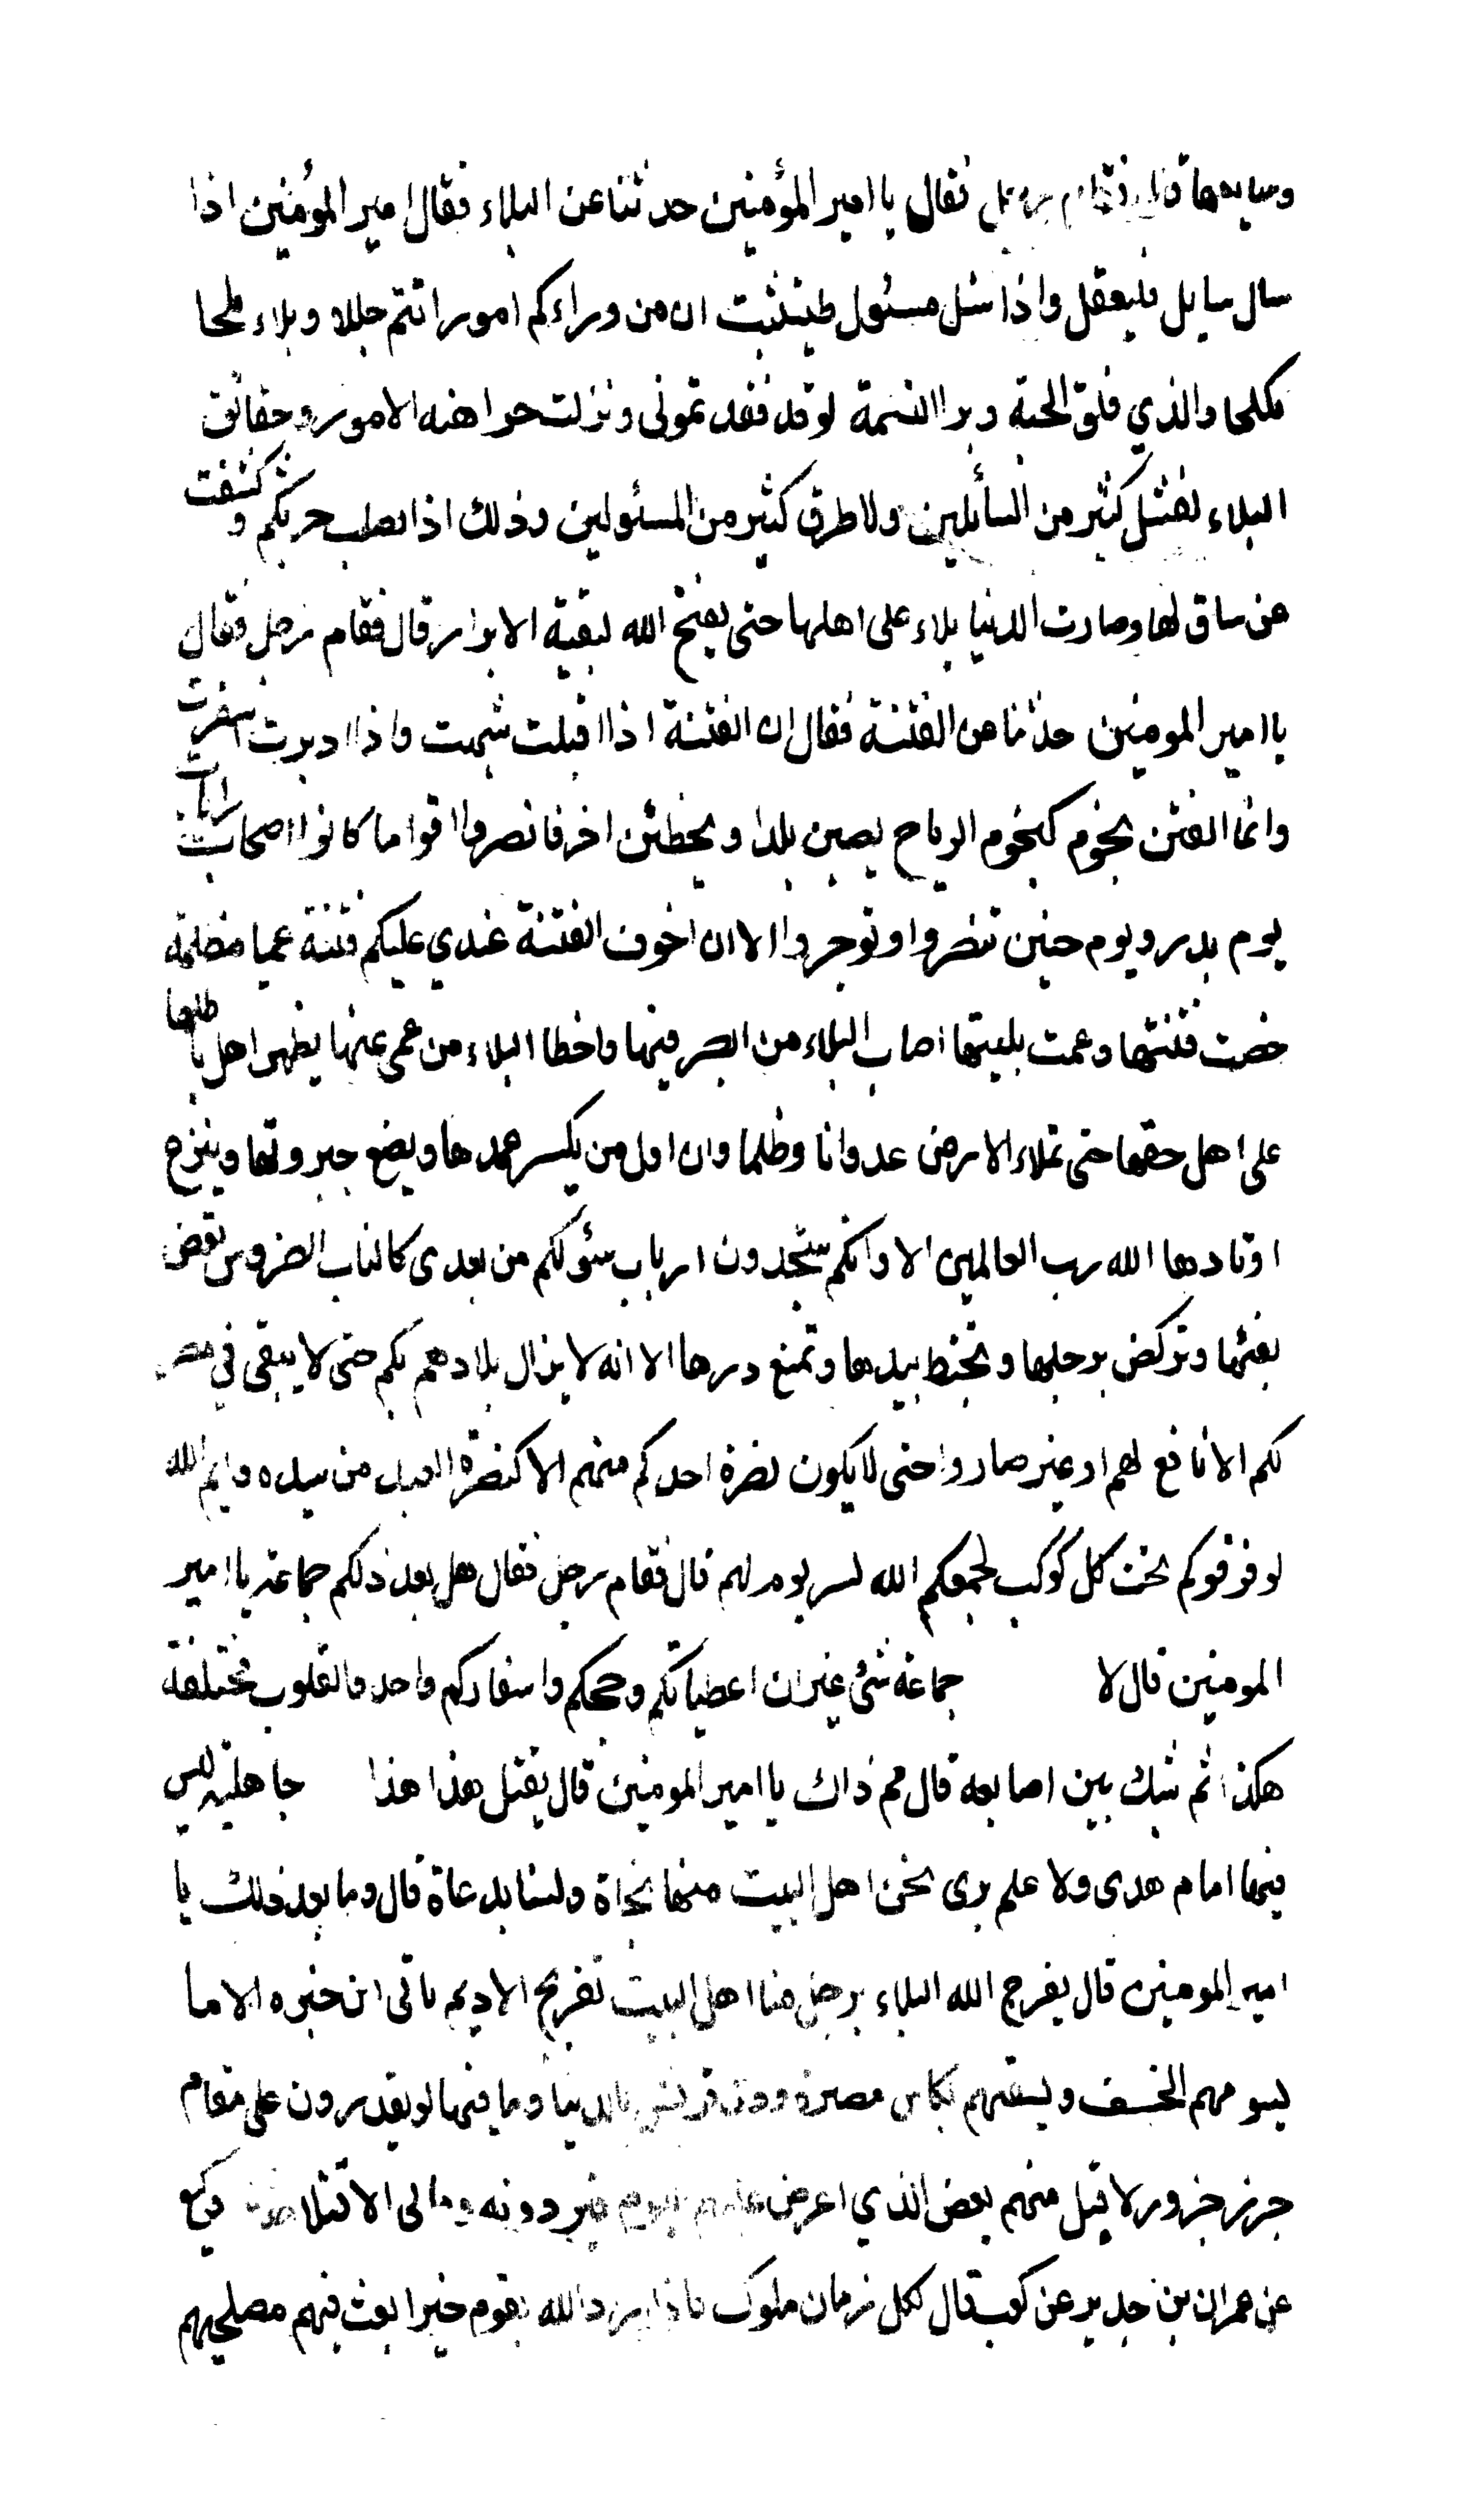 وسايقها قال فقام رجل فقال يا امير المؤمنين حدثنا عن البلاء فقال امير المؤمنين اذا
سال سايل فليعقل واذا سئل مسئول فليتثبت ان من وراءكم امورا اتتم جللا و بلاء ملحا
مكلحا والذي فلق الحبة وبرا النسمة لو قد فقد تموني ونزلت حواهنه الامور وحقائق
البلاء لفشل كثير من السائلين ولا طرق كثير من المسئولين وذلك اذا حربكم وكشفت
عن ساق لها وصارت الدنيا بلاء على اهلها حتى يفتح الله لبقية الابرار قال فقام رجل فقال
يا امير المومنين حدثنا عن الفتنة فقال ان الفتنة اذا اقبلت شبهت واذا ادبرت اسفرت
وانما الفتن نجوم كنجوم الرياح يصبن بلدا ويخطئن اخر فانصروا اقواما كانوا اصحاب رايات
يوم بدر ويوم حنين تنصروا وتوجروا الا ان اخوف الفتنة عندي عليكم فتنة عميا مظلمة
خصت فتنتها وعمت بليتها اصاب البلاء من ابصر فيها واخطا البلاء من عمى عنها يظهر اهل باطلها
على اهل حقها حتى تملاء الارض عدوانا وظلما وان اول من يكسر عمدها ويضع جبروتها وينزع
اوتادها الله رب العالمين الا وانكم ستجدون ارباب سئولكم من بعدى كالناب الضروس تعض
بفيها وتركض برجلها وتخبط بيدها وتمنع درها الا انه لا يزال بلادهم بكم حتى لا يبقى في مصر
لكم الا نافع لهم او غير صار واحتى لا يكون نصرة احدكم منهم الا كنصرة العبد من سيده وايم الله
لو فرقوكم تحت كل كوكب لجمعكم الله لسر يوم لهم قال فقام رجل فقال هل بعد ذلكم جماعة يا امير
المومنين قال لا جماعة شئ غير ان اعطياتكم وحجكم واسفاركم واحد والقلوب مختلفة
هكذا ثم شبك بين اصابعه قال مم ذاك يا امير المومنين قال يقتل هذا هذا جاهلية ليس
فيها امام هدى ولا علم يرى نحن اهل البيت منها نجاة ولسنا بدعاة قال وما بعد ذلك يا
امير المومنين قال يفرج الله البلاء برجل منا اهل البيت تفريج الاديم ياتى ابن خيره الاما
يسومهم الخسف ويسقيهم بكاس مصبرة ودت قريش بالدنيا وما فيها لو يقدرون على مقام
جزر جزور لا قبل منهم بعض الذي اعرض عليهم اليوم فيردونه ويابى الا قتلا وكيع
عن عمران بن حدير عن كعب قال لكل زمان ملوك فاذا يرد الله بقوم خيرا بعث فيهم مصلحيهم